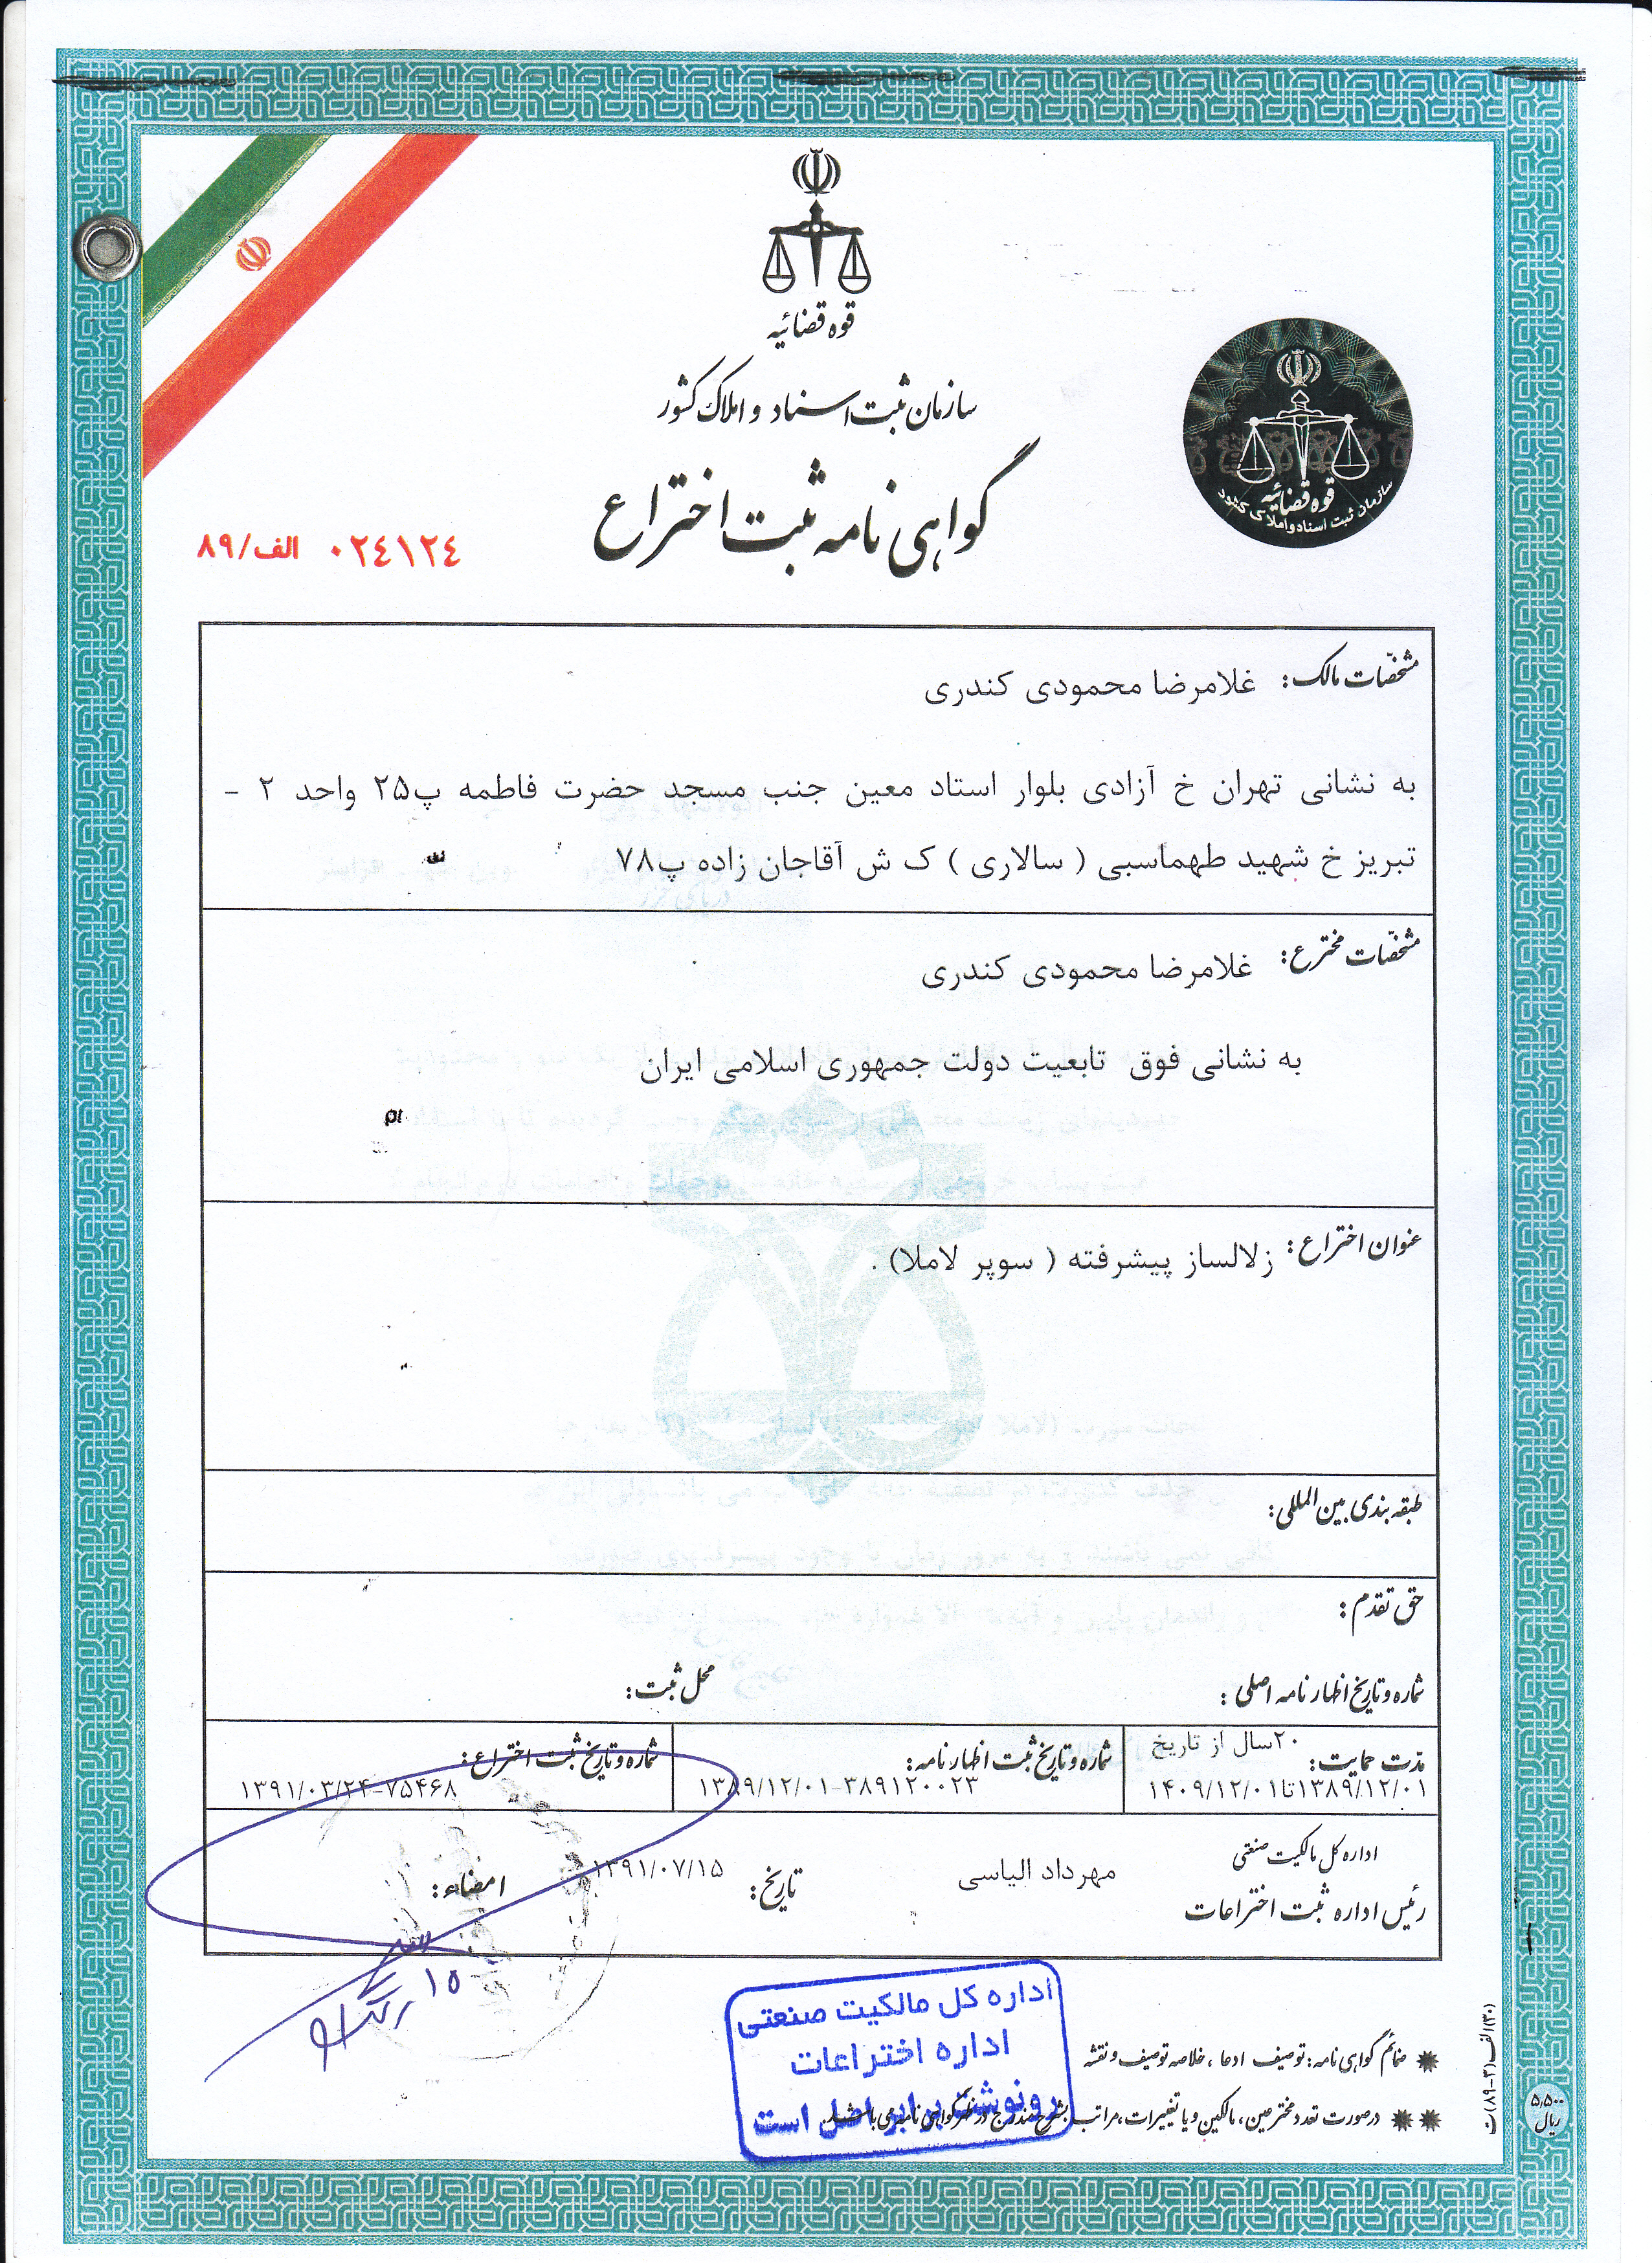 قوه قضائیه
سازمان ثبت اسناد و املاک کشور
گواهی نامه ثبت اختراع
قوه قضائیه
سازمان ثبت اسناد و املاک کشور
الف/۸۹ ۰۲۴۱۲۴
مشخصّات مالک: غلامرضا محمودی کندری
به نشانی تهران خ آزادی بلوار استاد معین جنب مسجد حضرت فاطمه پ۲۵ واحد ۲ -
تبریز خ شهید طهماسبی ( سالاری ) ک ش آقاجان زاده پ۷۸
مشخصّات مخترع: غلامرضا محمودی کندری
به نشانی فوق تابعیت دولت جمهوری اسلامی ایران
عنوان اختراع: زلالساز پیشرفته ( سوپر لاملا) .
طبقه بندی بین المللی:
حق تقدم:
شماره و تاریخ اظهار نامه اصلی: محل ثبت:
مدّت حمایت: ۲۰سال از تاریخ
۱۳۸۹/۱۲/۰۱تا۱۴۰۹/۱۲/۰۱
شماره و تاریخ ثبت اظهار نامه:
۱۳۸۹/۱۲/۰۱-۳۸۹۱۲۰۰۲۳
شماره و تاریخ ثبت اختراع:
۱۳۹۱/۰۳/۲۴-۷۵۴۶۸
اداره کل مالکیت صنعتی
رئیس اداره ثبت اختراعات مهرداد الیاسی تاریخ: ۱۳۹۱/۰۷/۱۵ امضاء:
اداره کل مالکیت صنعتی
اداره اختراعات
رونوشت برابر اصل است
ضمائم گواهی نامه: توصیف ادعا، خلاصه توصیف و نقشه
در صورت تعدد مخترعین، مالکین و یا تغییرات، مراتب بشرح مندرج در ظهر گواهی نامه می باشد.
۵,۵۰۰
ریال